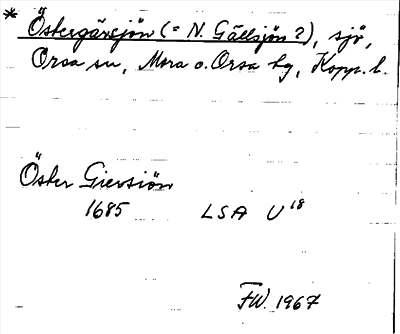 * Östergärsjön (= N. Gällsjön?), sjö,
Orsa sn, Mora o. Orsa tg, Kopp. l.
Öster Giersiön
1685 LSA U 18
FW. 1967